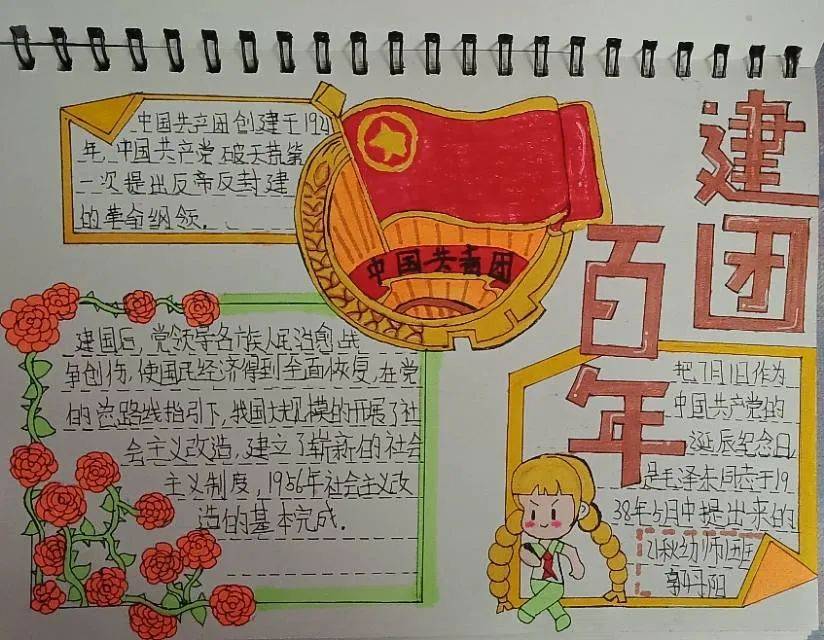 建团
百年
中国共产团创建于1921
年,中国共产党破天荒第
一次提出反帝反封建
的革命纲领.
中国共青团
建国后,党领导各族人民治愈战
争创伤,使国民经济得到全面恢复,在党
的总路线指引下,我国大规模的开展了社
会主义改造,建立了崭新的社会
主义制度,1956年社会主义改
造的基本完成.
把7月1日作为
中国共产党的
诞辰纪念日
是毛泽东同志于19
38年5月中提出来的
21秋幼师1班
郭丹阳